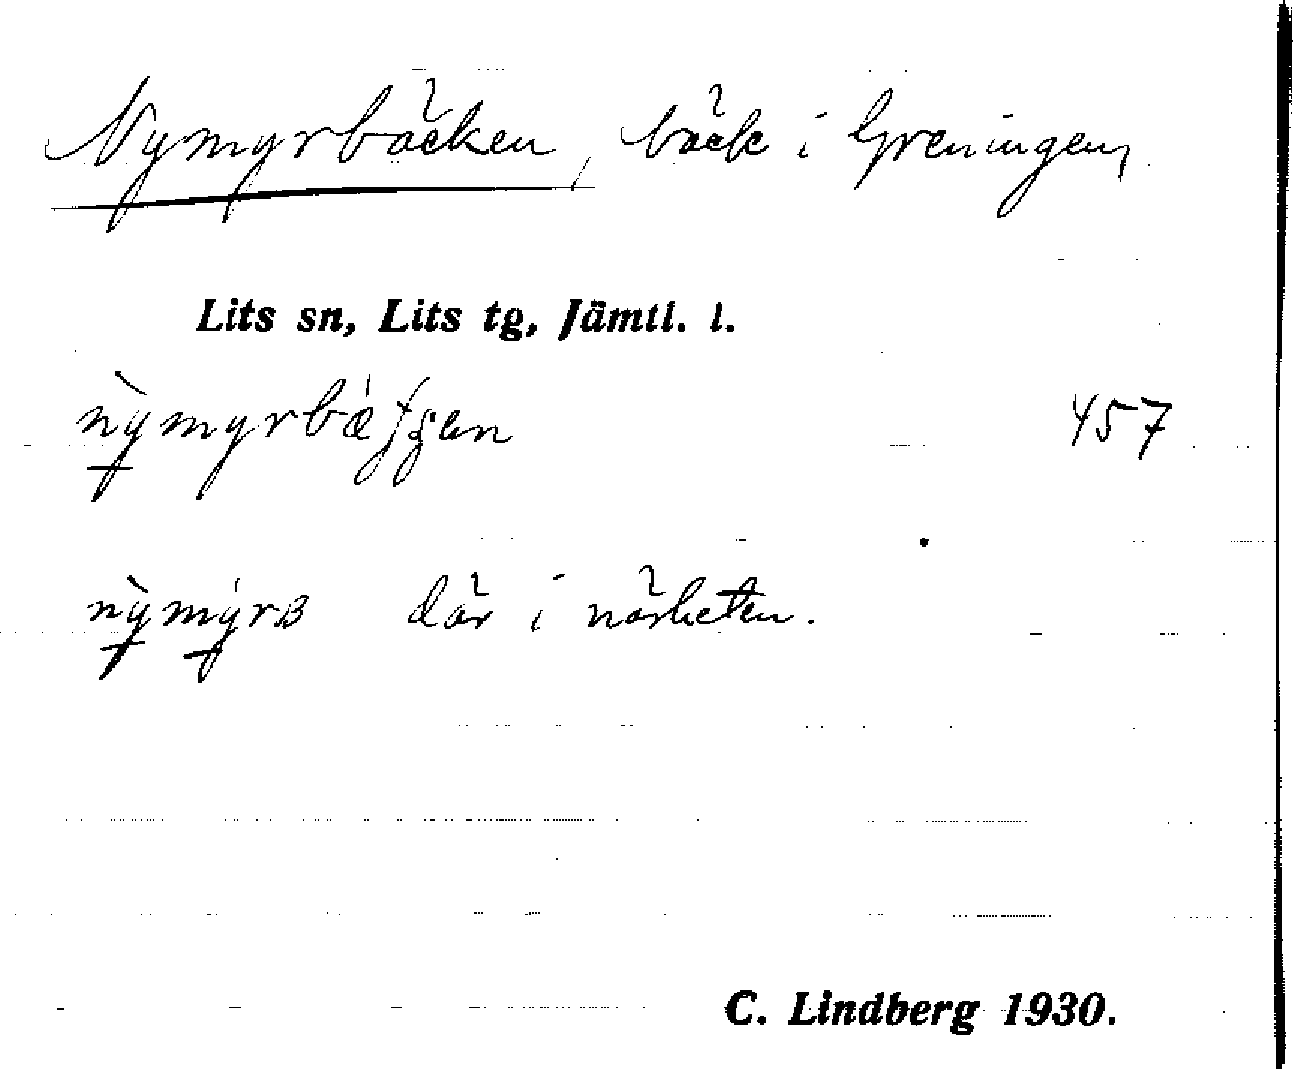 Nymyrbäcken, bäck i Greningen,
Lits sn, Lits tg, Jämtl. l.
457
där i närheten.
C. Lindberg 1930.